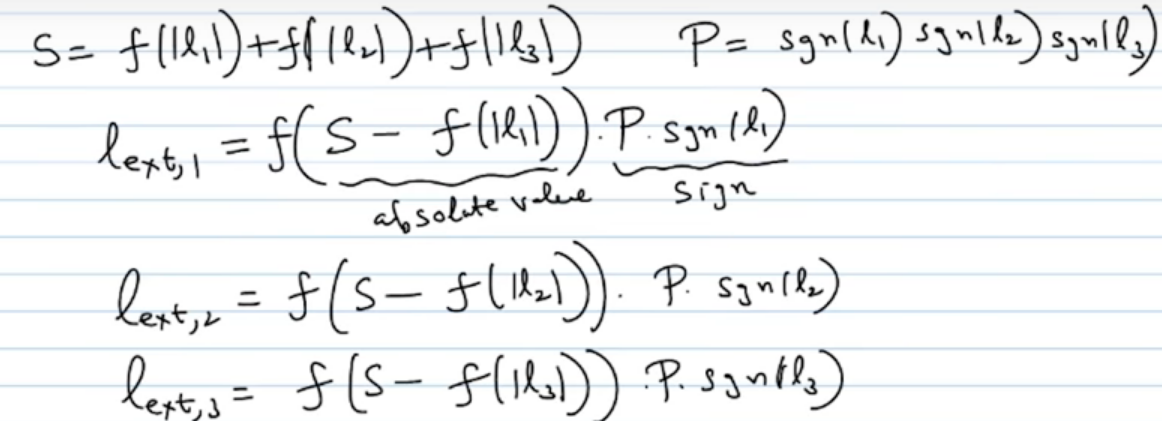 S = f(|l₁|)+f(|l₂|)+f(|l₃|) P = sgn(l₁) sgn(l₂) sgn(l₃)
l_ext,1 = f(S − f(|l₁|)).P. sgn(l₁)
absolute value sign
l_ext,2 = f(S − f(|l₂|)). P. sgn(l₂)
l_ext,3 = f(S − f(|l₃|)) .P. sgn(l₃)